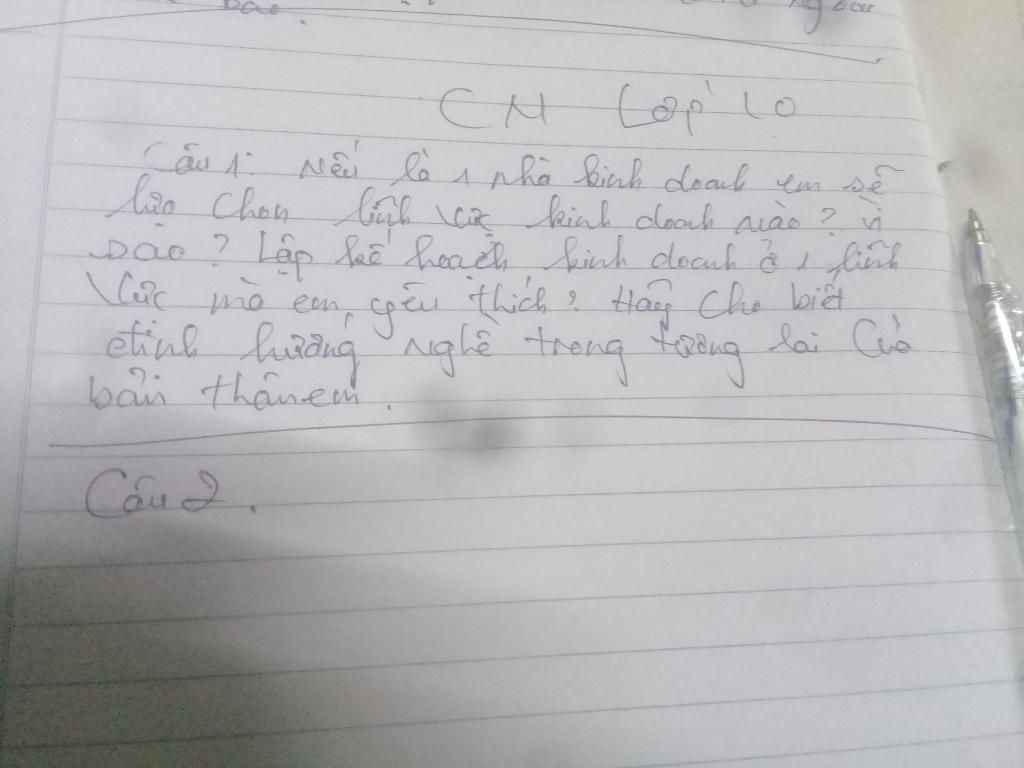 sao.
CN Lớp 10
Câu 1: Nếu là 1 nhà kinh doanh em sẽ
lựa chọn lĩnh vực kinh doanh nào? Vì
sao? Lập kế hoạch kinh doanh ở 1 lĩnh
vực mà em yêu thích? Hãy cho biết
định hướng nghề trong tương lai của
bản thân em.
Câu 2.